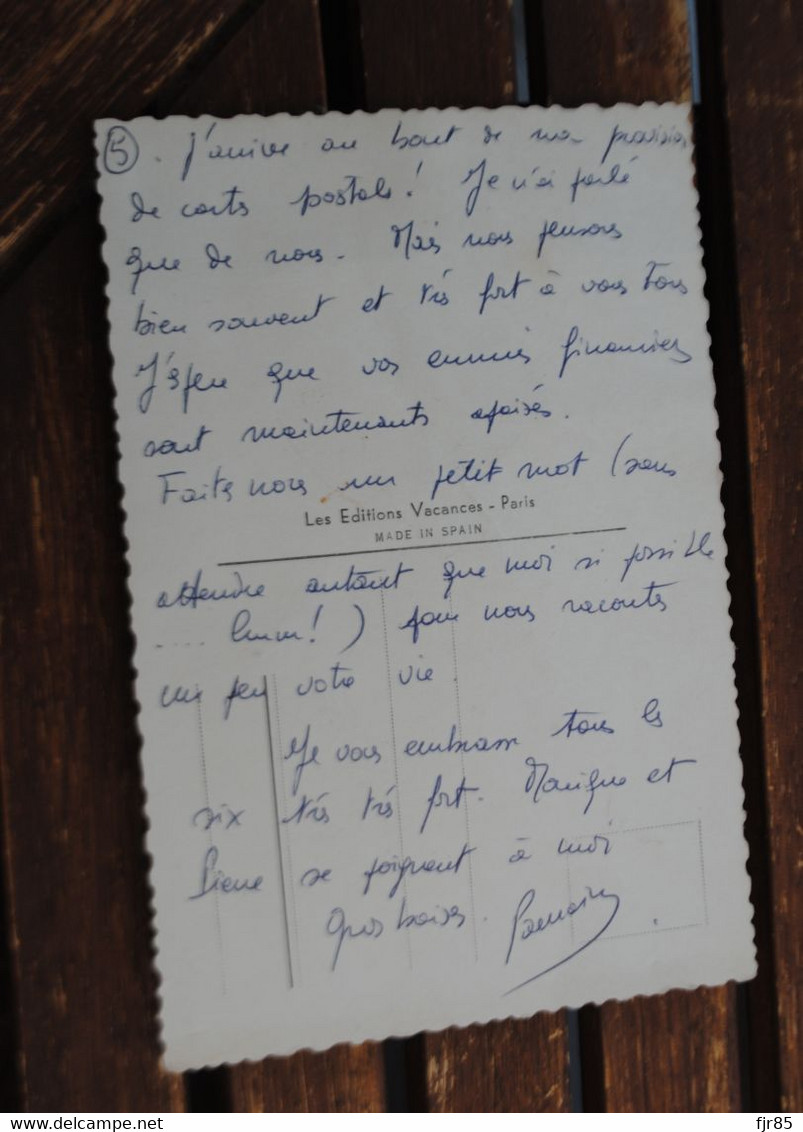 (5). J'arrive au bout de ma provision
de cartes postales ! Je n'ai parlé
que de nous. Mais nous pensons
bien souvent et très fort à vous tous
J'espère que vos ennuis financiers
sont maintenants apaisés.
Faites nous un petit mot (sans
Les Editions Vacances - Paris
MADE IN SPAIN
attendre autant que moi si possible
.... hum ! ) pour nous raconter
un peu votre vie.
Je vous embrasse tous les
six très très fort. et
Pierre se joignent à moi
Gros baisers.
fjr85